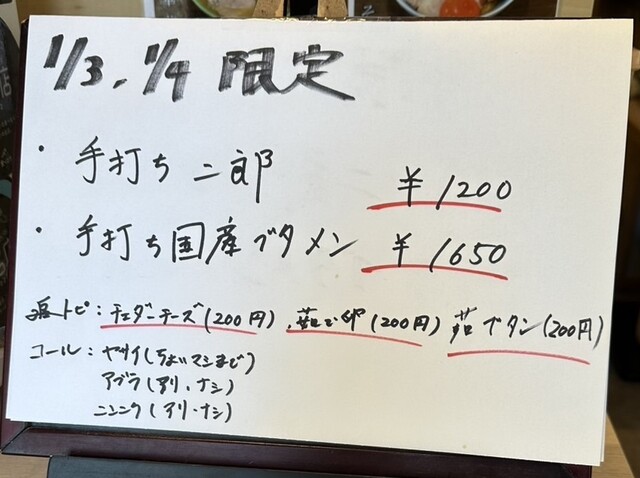 1/3, 1/4 限定
・手打ち二郎 ¥1200
・手打ち国産ブタメン ¥1650
トピ：チェダーチーズ(200円)、茹で卵(200円) 茹ブタン(200円)
コール：ヤサイ(ちょいマシまで)
アブラ(アリ・ナシ)
ニンニク(アリ・ナシ)